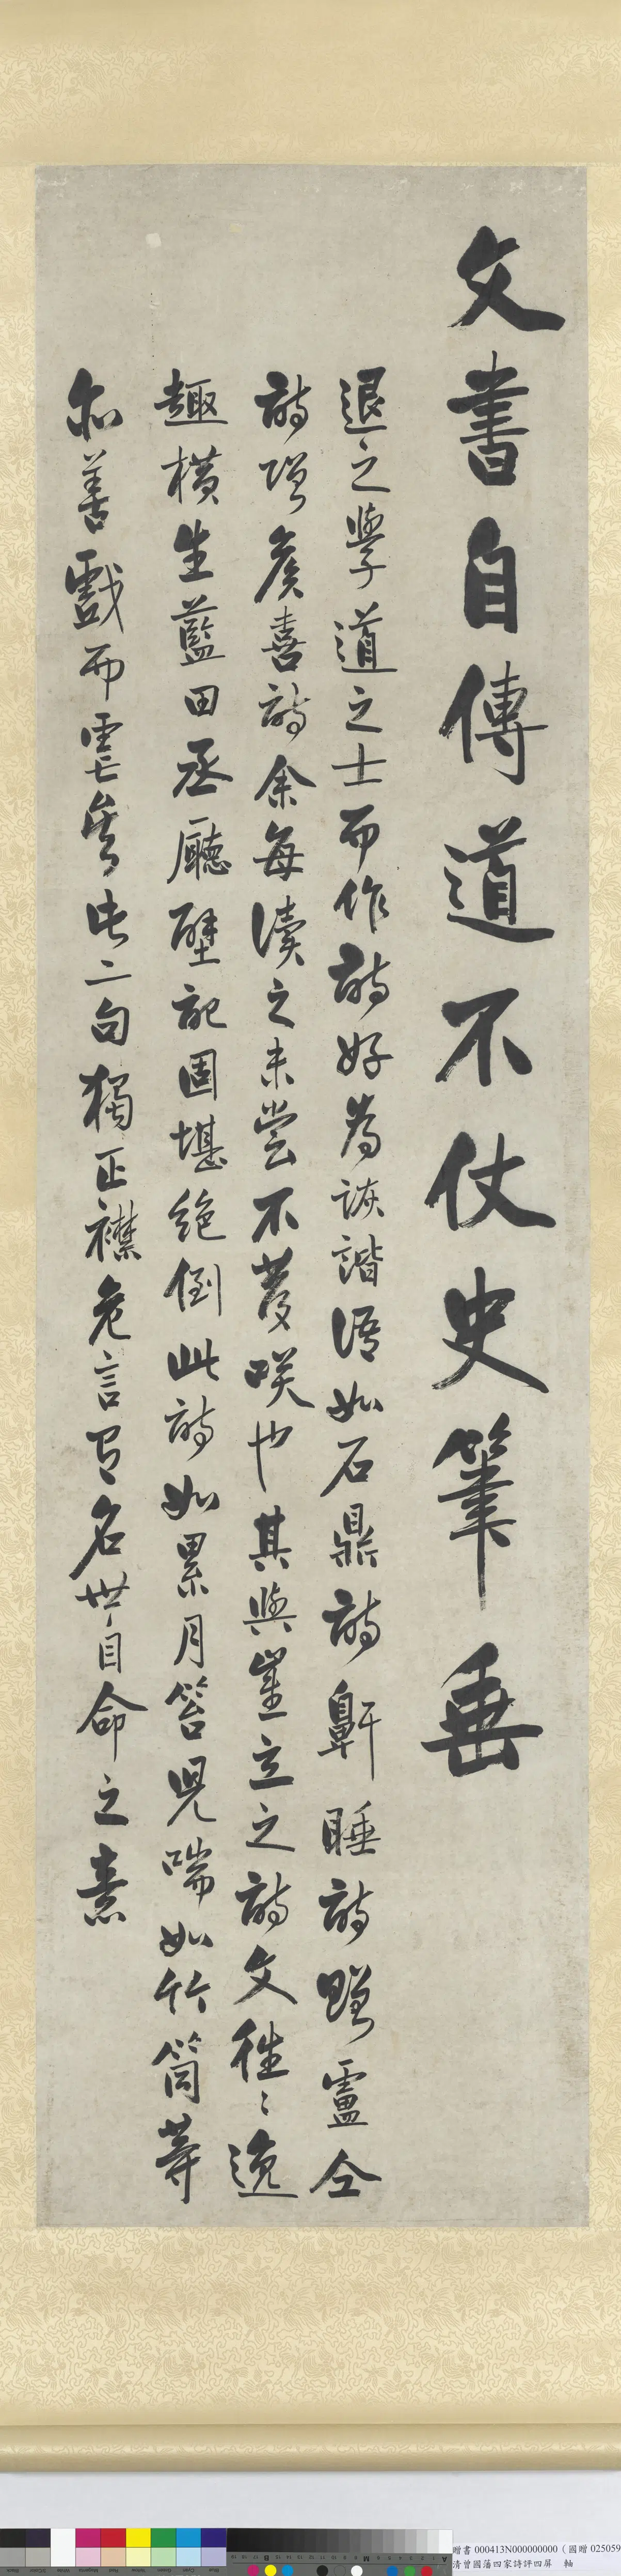 文書自傳道不仗史筆垂
退之學道之士而作詩好為詼諧語如石鼎詩鼾睡詩贈盧仝
詩贈侯喜詩余每讀之未嘗不發咲也其與崔立之詩文往〻逸
趣橫生藍田丞廳壁記固堪絕倒此詩如累月笞兒喘如竹筒等
亦善戲而虐矣此二句獨正襟危言有名世自命之意
贈書 000413N000000000 (國贈 025059
清曾國藩四家詩評四屏 軸